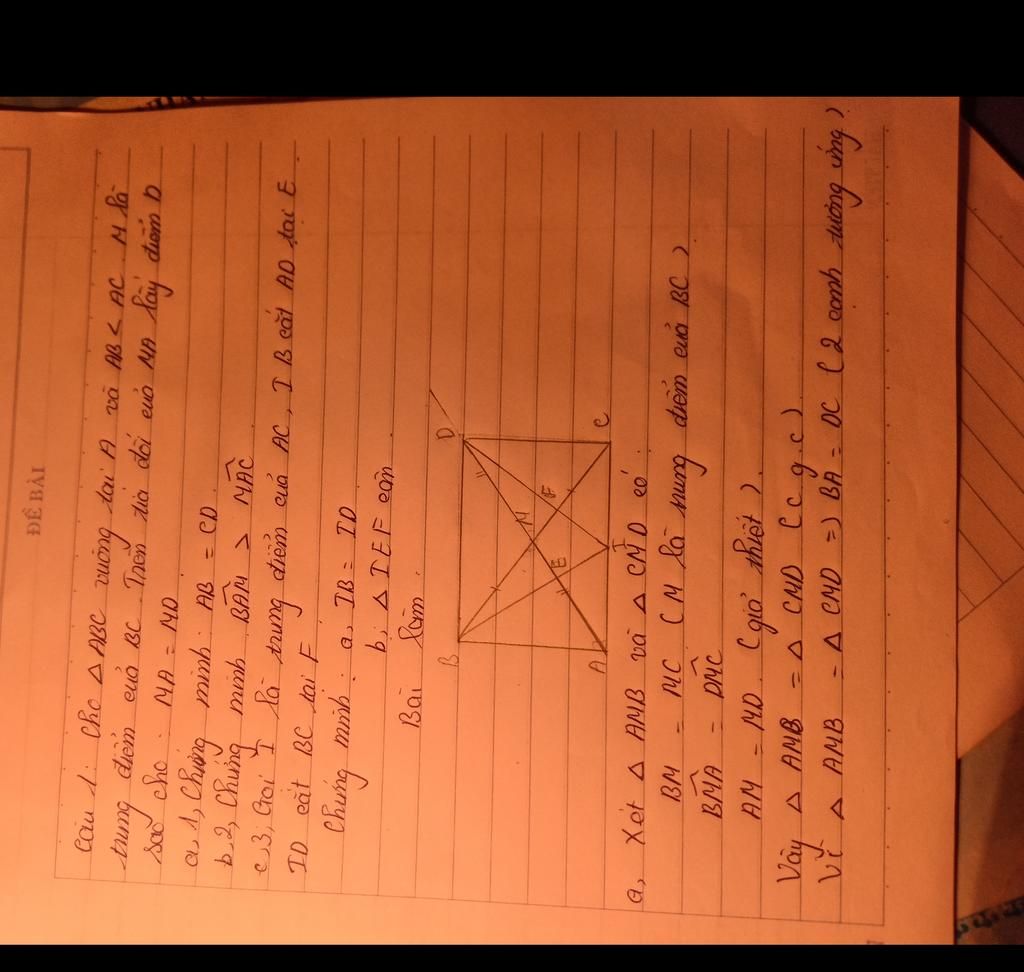 ĐỀ BÀI
Câu 1: Cho △ ABC vuông tại A và AB < AC. M là
trung điểm của BC. Trên tia đối của MA lấy điểm D
sao cho: MA = MD
a, 1, Chứng minh: AB = CD
b, 2, Chứng minh BAM > MAC
c, 3, Gọi I là trung điểm của AC, IB cắt AD tại E
ID cắt BC tại F
Chứng minh: a, IB = ID
b. △ IEF cân
Bài làm.
B
D
M
E
F
A
I
C
a, Xét △ AMB và △ CMD có.
BM = MC (M là trung điểm của BC)
BMA = DMC
AM = MD (giả thiết).
Vậy △ AMB = △ CMD (c.g.c)
Vì △ AMB = △ CMD => BA = DC (2 cạnh tương ứng)